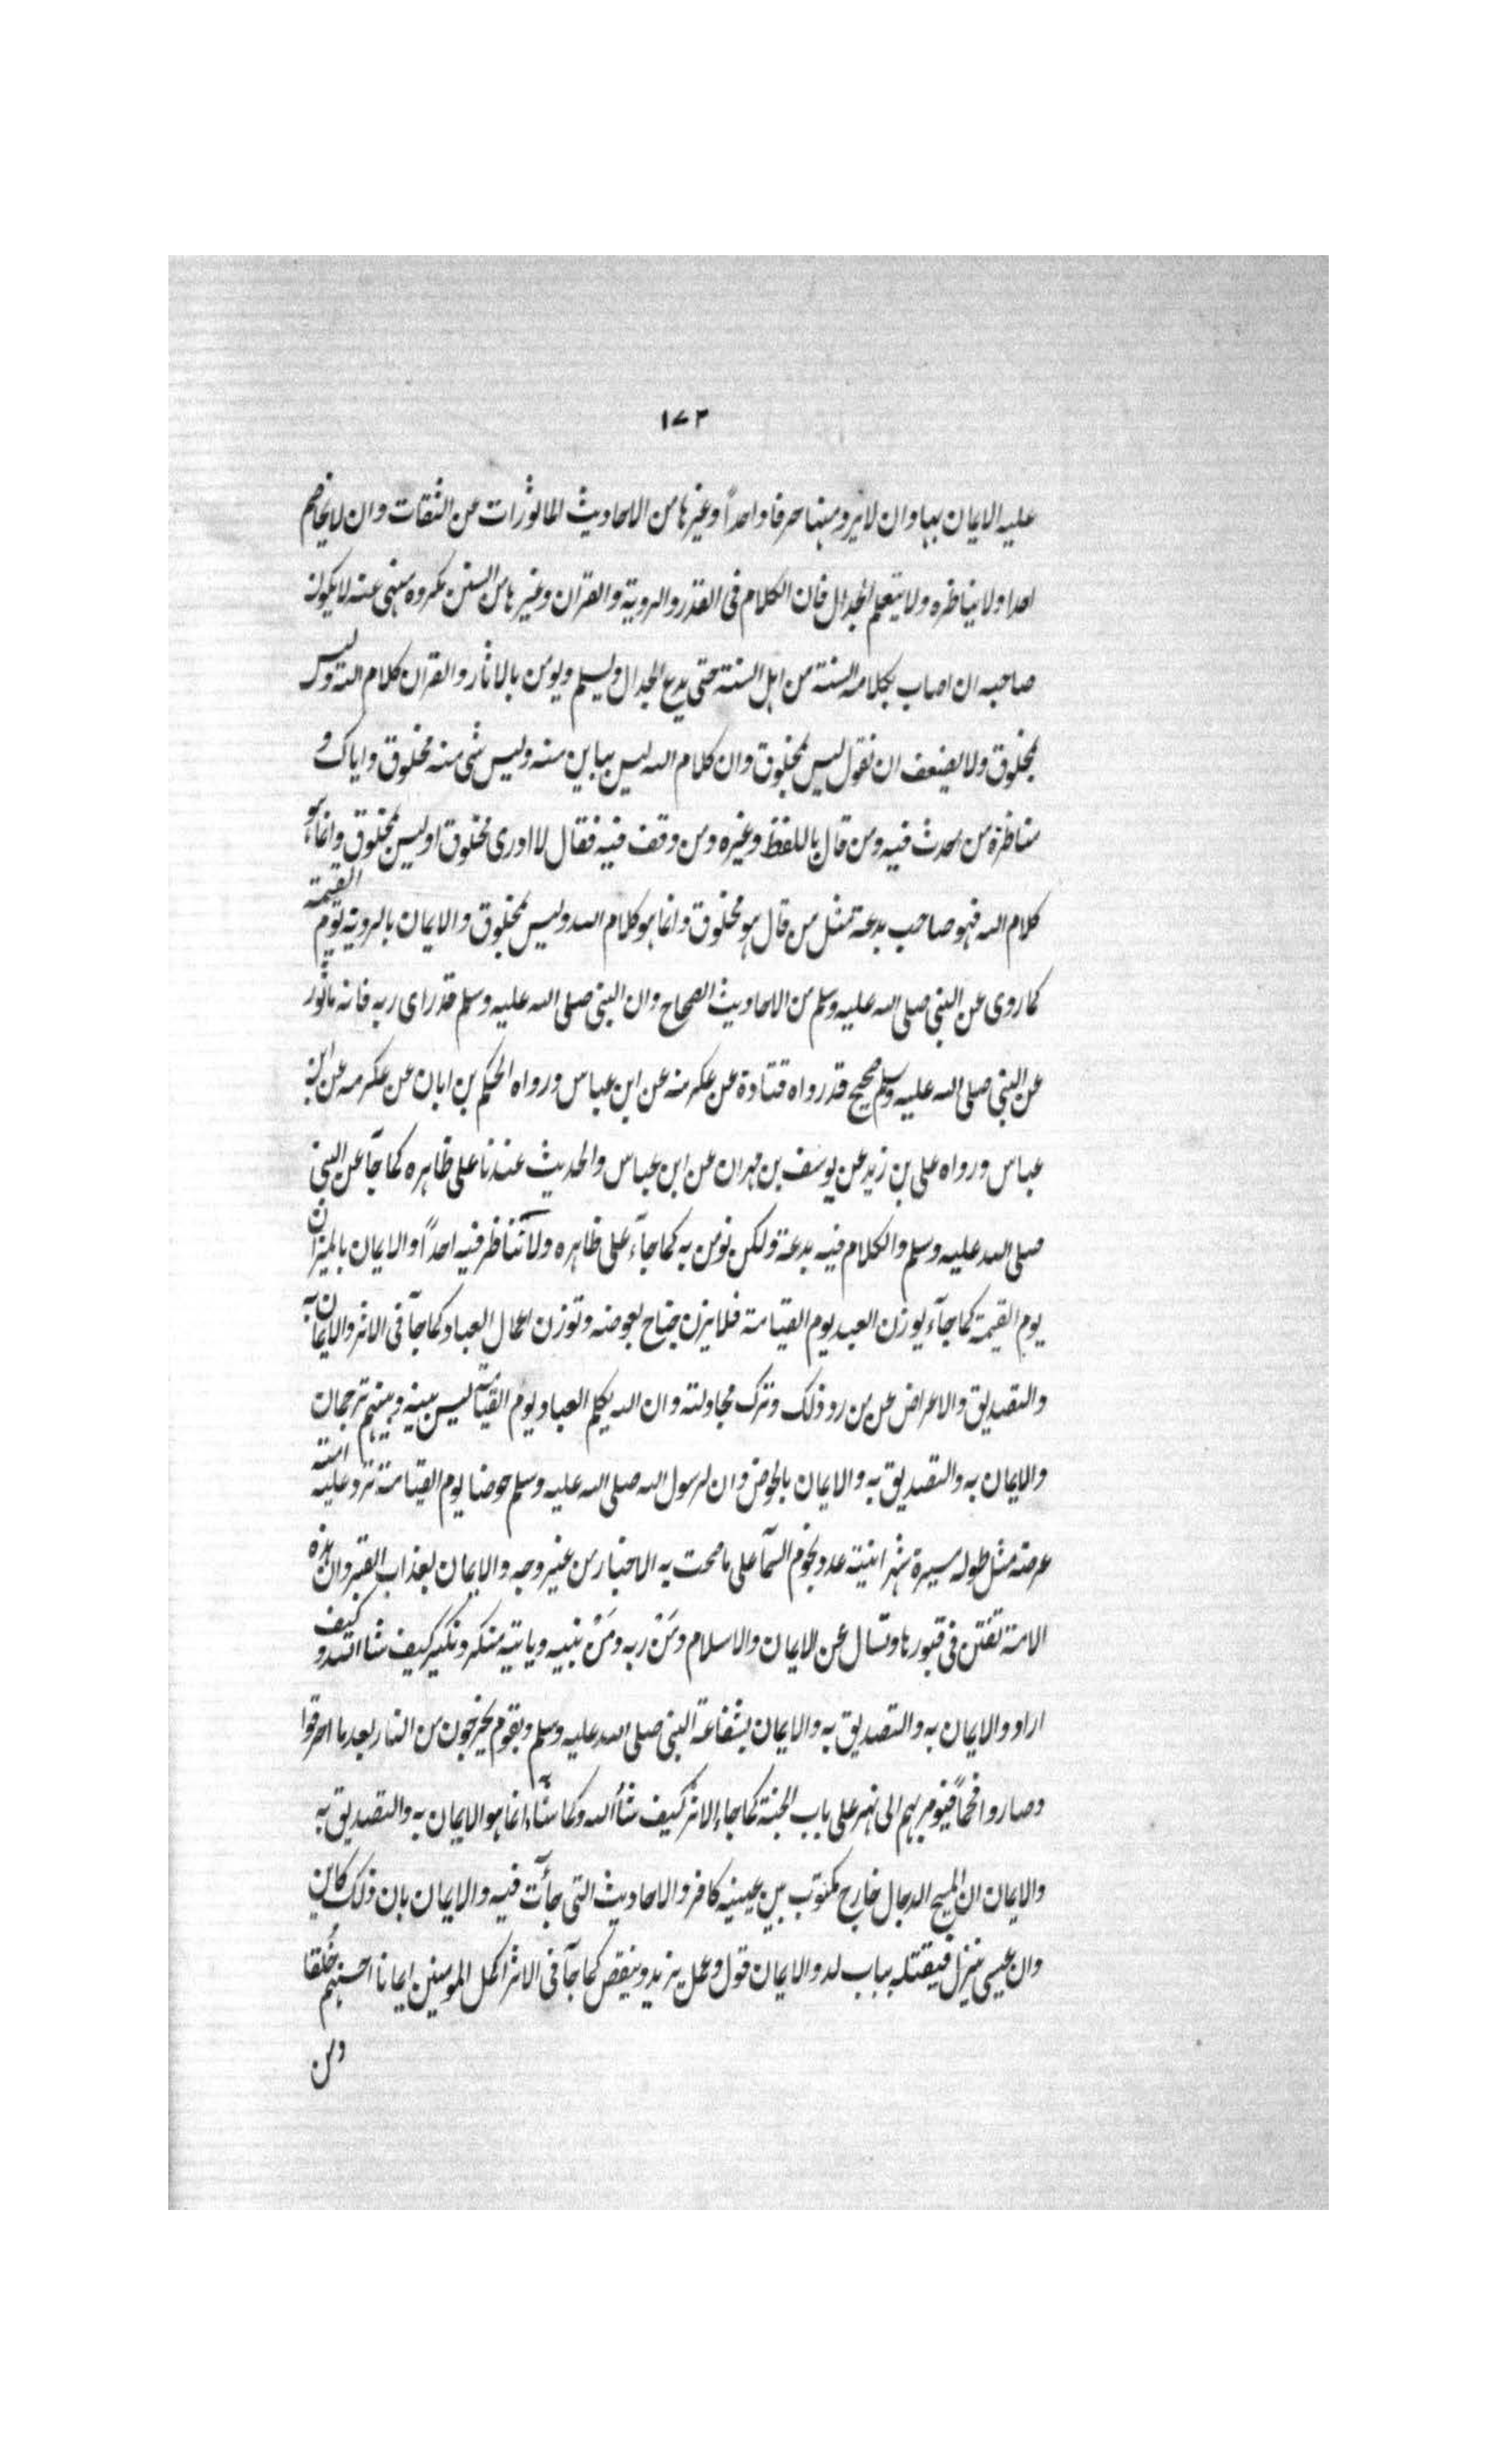 ١٧٢
عليه الايمان بها وان لا يرد منها حرفا واحداً وغيرها من الاحاديث الماثورات عن الثقات وان لا يخاصم
احدا ولا يناظره ولا يتعلم الجدال فان الكلام فى القدر والروية والقران وغيرها من السنن مكروه منهى عنه لا يكون
صاحبه ان اصاب بكلامه السنة من اهل السنة حتى يدع الجدال ويسلم ويومن بالاثار والقران كلام الله وليس
بمخلوق ولا يضعف ان نقول ليس بمخلوق وان كلام الله ليس بباين منه وليس شى منه مخلوق واياك و
مناظرة من احدث فيه ومن قال باللفظ وغيره ومن وقف فيه فقال لا ادرى مخلوق او ليس بمخلوق وانما هو
كلام الله فهو صاحب بدعة مثل من قال هو مخلوق وانما هو كلام الله وليس بمخلوق والايمان بالروية يوم القيمة
كما روى عن النبى صلى الله عليه وسلم من الاحاديث الصحاح وان النبى صلى الله عليه وسلم قد راى ربه فانه ماثور
عن النبى صلى الله عليه وسلم صحيح قد رواه قتادة عن عكرمة عن ابن عباس ورواه الحكم بن ابان عن عكرمه عن ابن
عباس ورواه على بن زيد عن يوسف بن مهران عن ابن عباس والحديث عندنا على ظاهره كما جآ عن النبى
صلى الله عليه وسلم والكلام فيه بدعة ولكن نومن به كما جآء على ظاهره ولا نناظر فيه احداً والايمان بالميزان
يوم القيمة كما جآء يوزن العبد يوم القيامة فلا يزن جناح بعوضه وتوزن اعمال العباد كما جآ فى الاثر والايمان به
والتصديق والاعراض عن من رد ذلك وترك مجادلته وان الله يكلم العباد يوم القيامة ليس بينه وبينهم ترجمان
والايمان به والتصديق به والايمان بالحوض وان لرسول الله صلى الله عليه وسلم حوضا يوم القيامة ترد عليه امته
عرضه مثل طوله مسيرة شهر انيته عدد نجوم السمآ على ما صحت به الاخبار من غير وجه والايمان بعذاب القبر وان هذه
الامة تفتن فى قبورها وتسال عن الايمان والاسلام ومَنْ ربه ومَنْ نبيه وياتيه منكر ونكير كيف شا الله وكيف
اراد والايمان به والتصديق به والايمان بشفاعة النبى صلى الله عليه وسلم وبقوم يخرجون من النار بعد ما احرقوا
وصاروا فحماً فيومر بهم الى نهر على باب الجنة كما جاء الاثر كيف شاء الله وكما شاء انما هو الايمان به والتصديق به
والايمان ان المسيح الدجال خارج مكتوب بين عينيه كافر والاحاديث التى جآت فيه والايمان بان ذلك كاين
وان عيسى ينزل فيقتله بباب لد والايمان قول وعمل يزيد وينقص كما جآ فى الاثر اكمل المومنين ايمانا احسنهم خُلقا
ومن